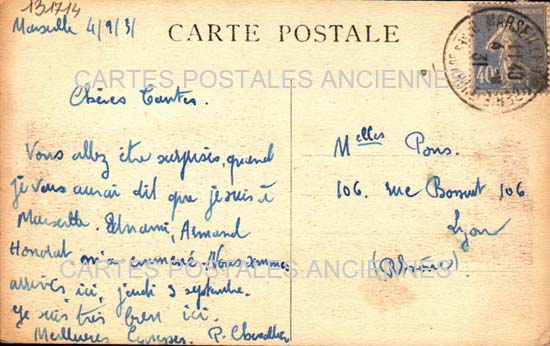 131714
Marseille 4/9/31
CARTE POSTALE
CARTES POSTALES ANCIENNES
40c
MARSEILLE
Chères Tantes.
Vous allez être surprises, quand
je vous aurai dit que je suis à
Marseille. Armand
Honorat m'a emmené. Nous sommes
arrivés ici, jeudi 3 septembre.
Je suis très bien ici.
Meilleures Caresses. P. Chevallier
Melles Pons.
106. rue Bossuet 106
Lyon
(Rhône)
CARTES POSTALES ANCIENNES